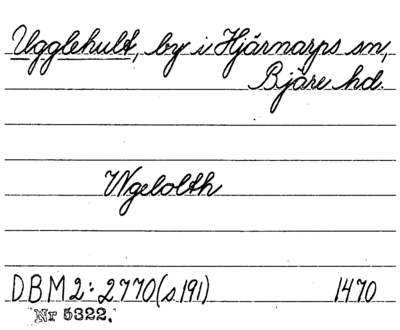 Ugglehult, by i Hjärnarps sn,
Bjäre hd.
Wgelolth
DBM 2: 2770 (s 191) 1470
Nr 5322.